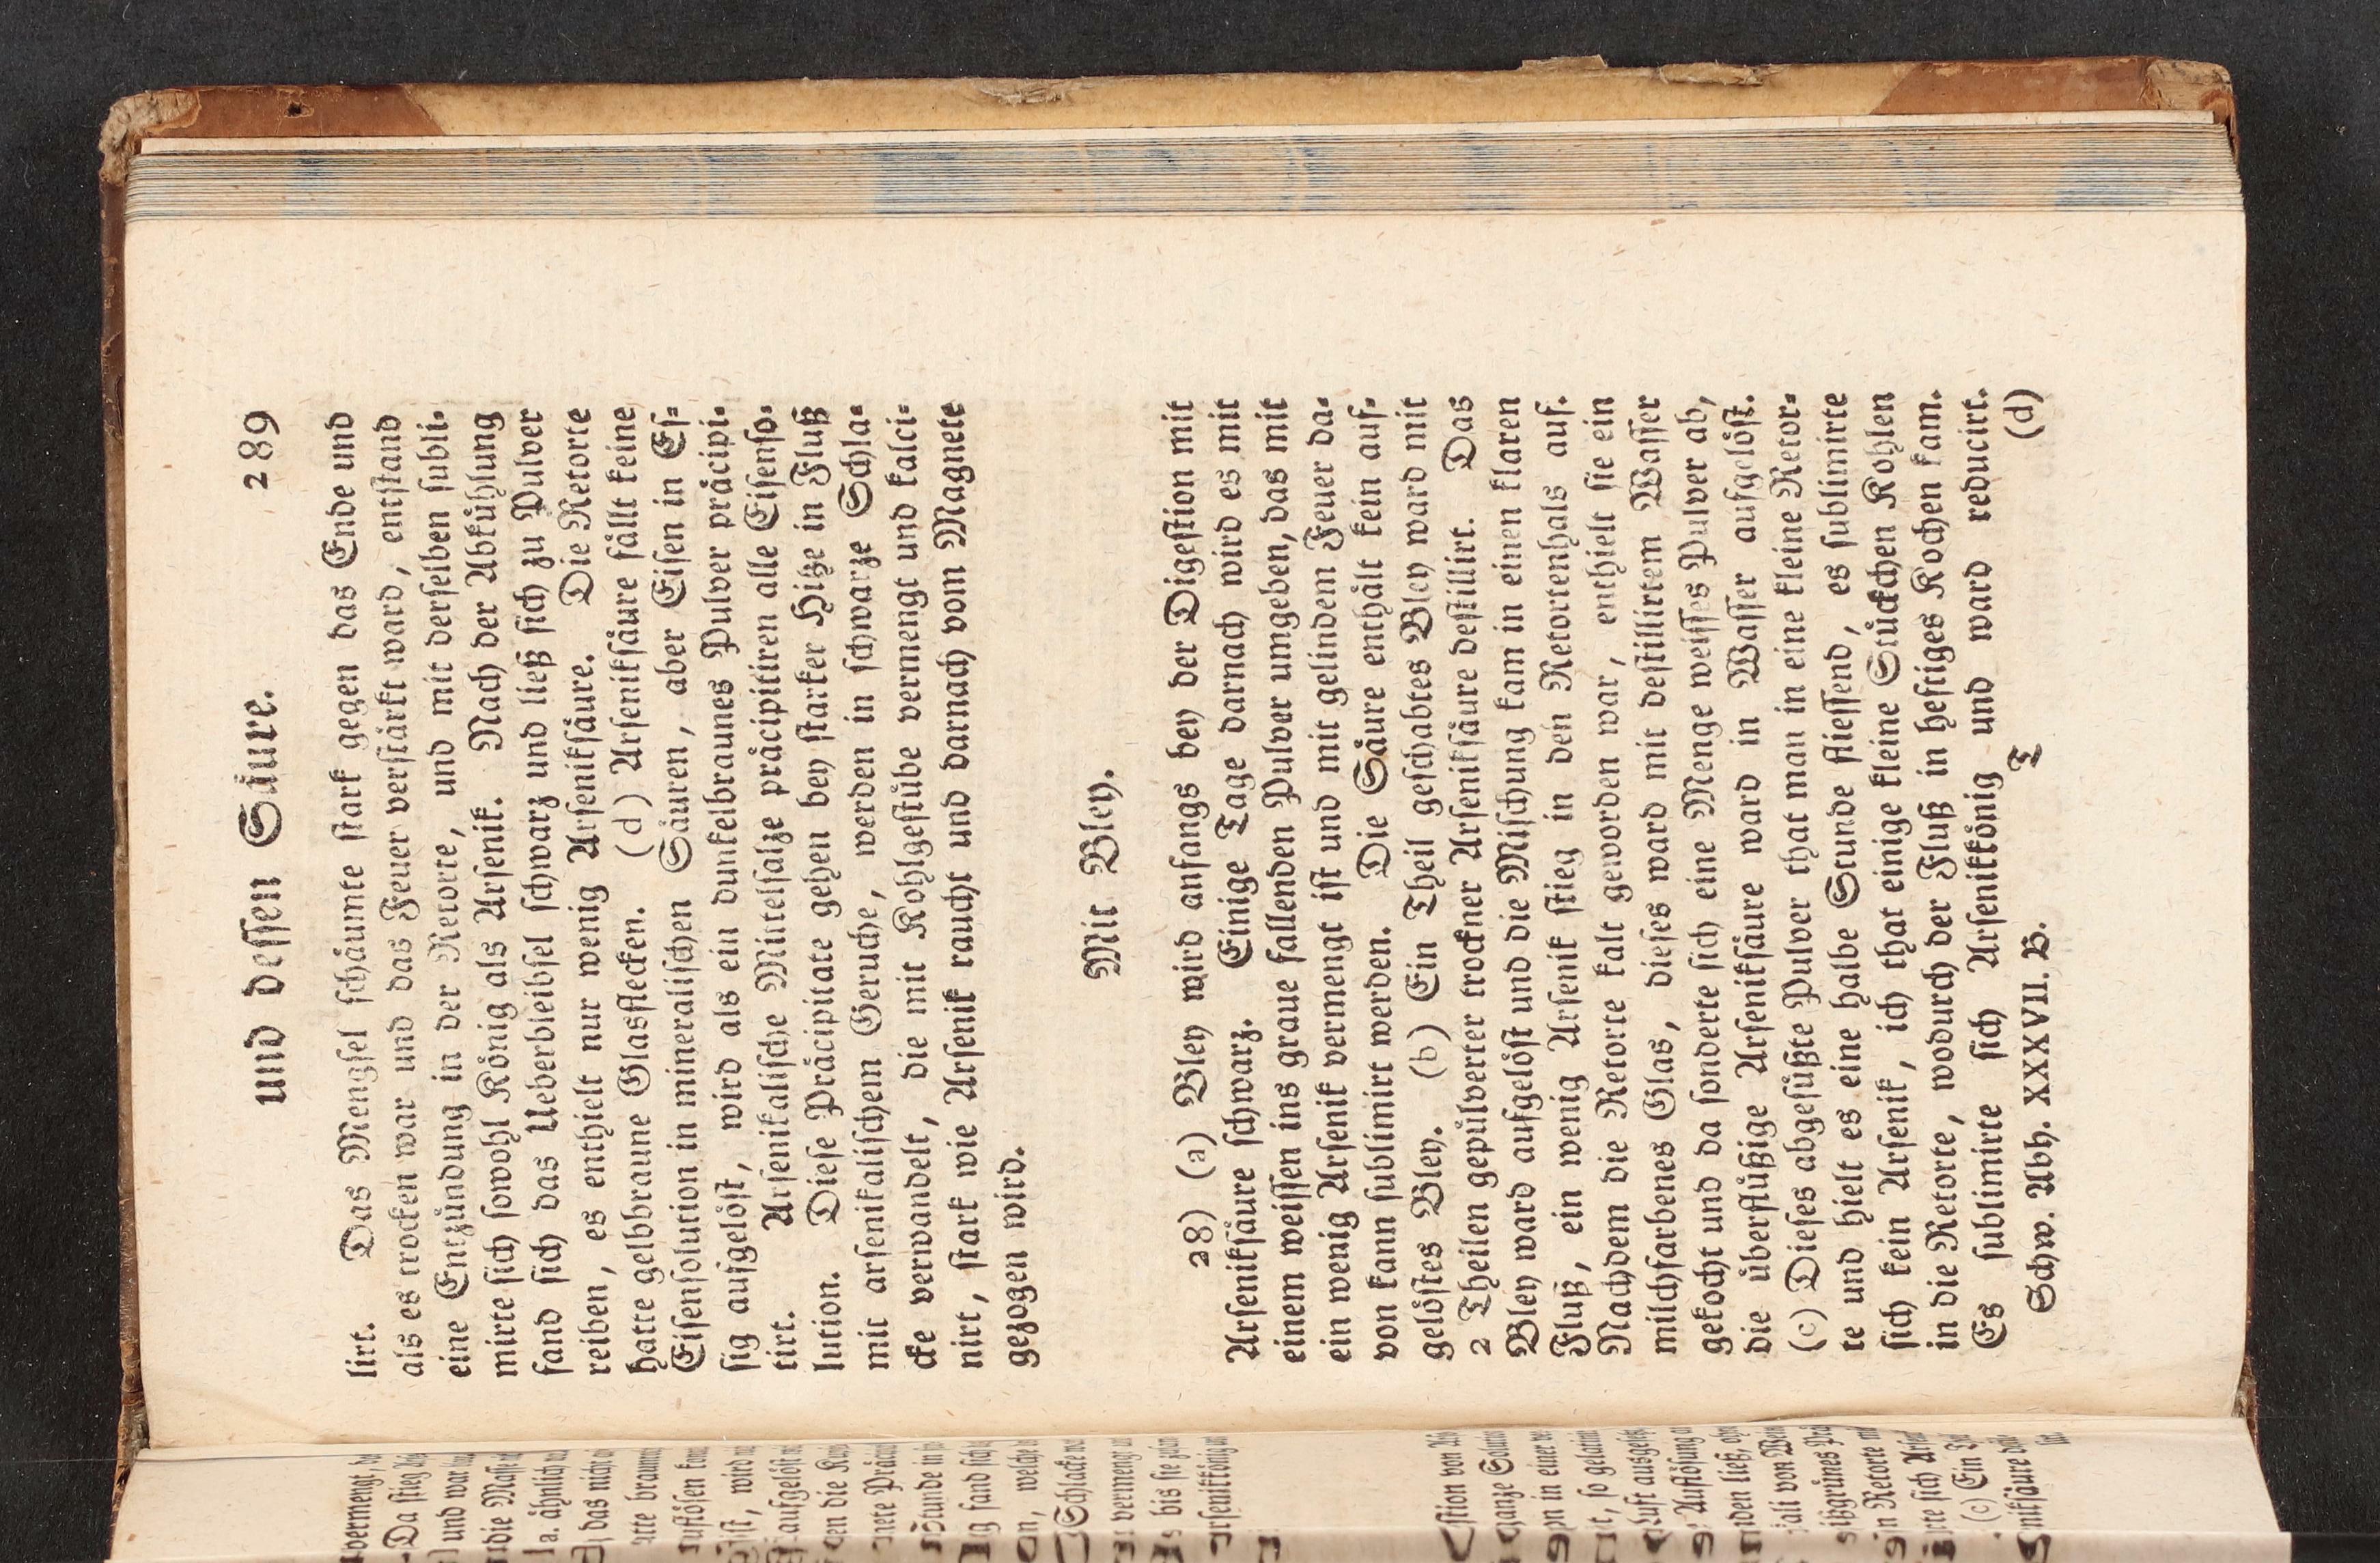 und dessen Säure. 289
lirt. Das Mengsel schäumte stark gegen das Ende und
als es trocken war und das Feuer verstärkt ward, entstand
eine Entzündung in der Retorte, und mit derselben subli-
mirte sich sowohl König als Arsenik. Nach der Abkühlung
fand sich das Ueberbleibsel schwarz und ließ sich zu Pulver
reiben, es enthielt nur wenig Arseniksäure. Die Retorte
hatte gelbbraune Glasflecken. (d) Arseniksäure fällt keine
Eisensolution in mineralischen Säuren, aber Eisen in Es-
sig aufgelöst, wird als ein dunkelbraunes Pulver präcipi-
tirt. Arsenikalische Mittelsalze präcipitiren alle Eisenso-
lution. Diese Präcipitate gehen bey starker Hitze in Fluß
mit arsenikalischem Geruche, werden in schwarze Schla-
cke verwandelt, die mit Kohlgestübe vermengt und kalci-
nirt, stark wie Arsenik raucht und darnach vom Magnete
gezogen wird.
Mit Bley.
28) (a) Bley wird anfangs bey der Digestion mit
Arseniksäure schwarz. Einige Tage darnach wird es mit
einem weissen ins graue fallenden Pulver umgeben, das mit
ein wenig Arsenik vermengt ist und mit gelindem Feuer da-
von kann sublimirt werden. Die Säure enthält kein auf-
gelöstes Bley. (b) Ein Theil geschabtes Bley ward mit
2 Theilen gepülverter trockner Arseniksäure destillirt. Das
Bley ward aufgelöst und die Mischung kam in einen klaren
Fluß, ein wenig Arsenik stieg in den Retortenhals auf.
Nachdem die Retorte kalt geworden war, enthielt sie ein
milchfarbenes Glas, dieses ward mit destillirtem Wasser
gekocht und da sonderte sich eine Menge weisses Pulver ab,
die überflüßige Arseniksäure ward in Wasser aufgelöst.
(c) Dieses abgesüßte Pulver that man in eine kleine Retor-
te und hielt es eine halbe Stunde fliessend, es sublimirte
sich kein Arsenik, ich that einige kleine Stückchen Kohlen
in die Retorte, wodurch der Fluß in heftiges Kochen kam.
Es sublimirte sich Arsenikkönig und ward reducirt.
Schw. Abh. XXXVII. B. T (d)